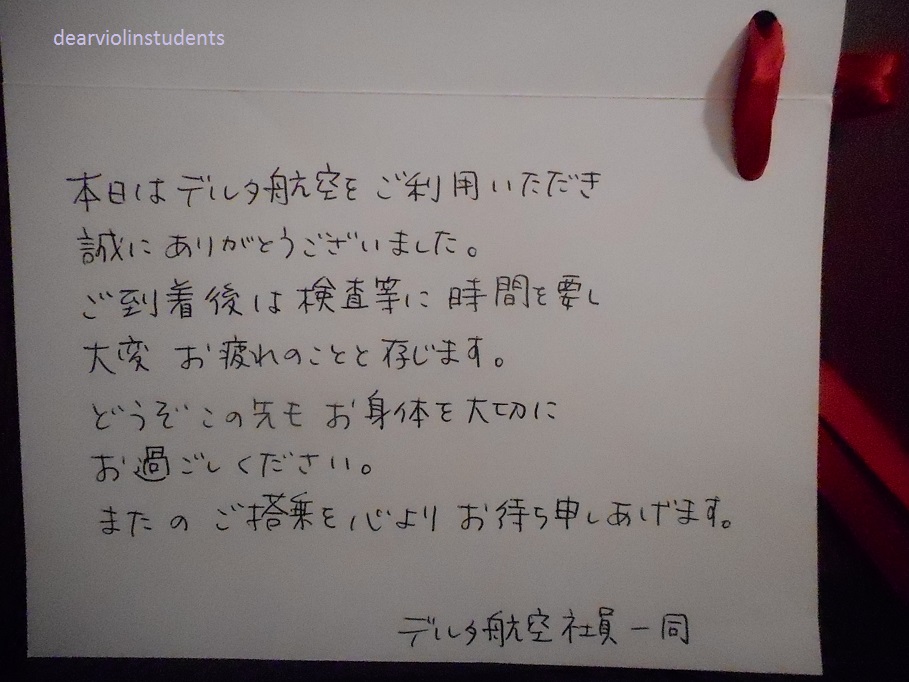 dearviolinstudents
本日はデルタ航空をご利用いただき
誠にありがとうございました。
ご到着後は検査等に時間を要し
大変お疲れのことと存じます。
どうぞこの先もお身体を大切に
お過ごしください。
またのご搭乗を心よりお待ち申しあげます。
デルタ航空社員一同